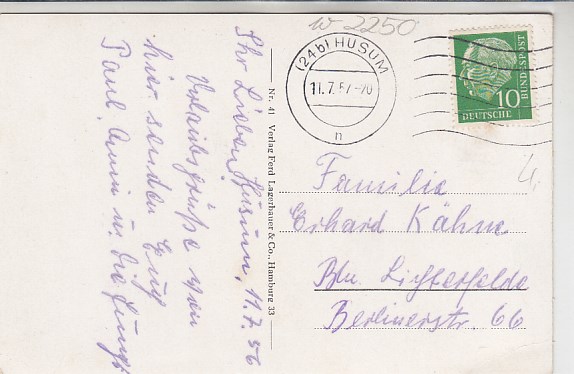 w 2250
(24b) HUSUM
11.7.57-20
n
10
DEUTSCHE
BUNDESPOST
Husum, 11.7.56
Ihr Lieben,
Urlaubsgrüße von
hier senden Euch
Paul, u. die Jungs
Nr. 41 Verlag Ferd Lagerbauer & Co., Hamburg 33
Familie
Erhard Kähne
Bln. Lichterfelde
Berlinerstr. 66